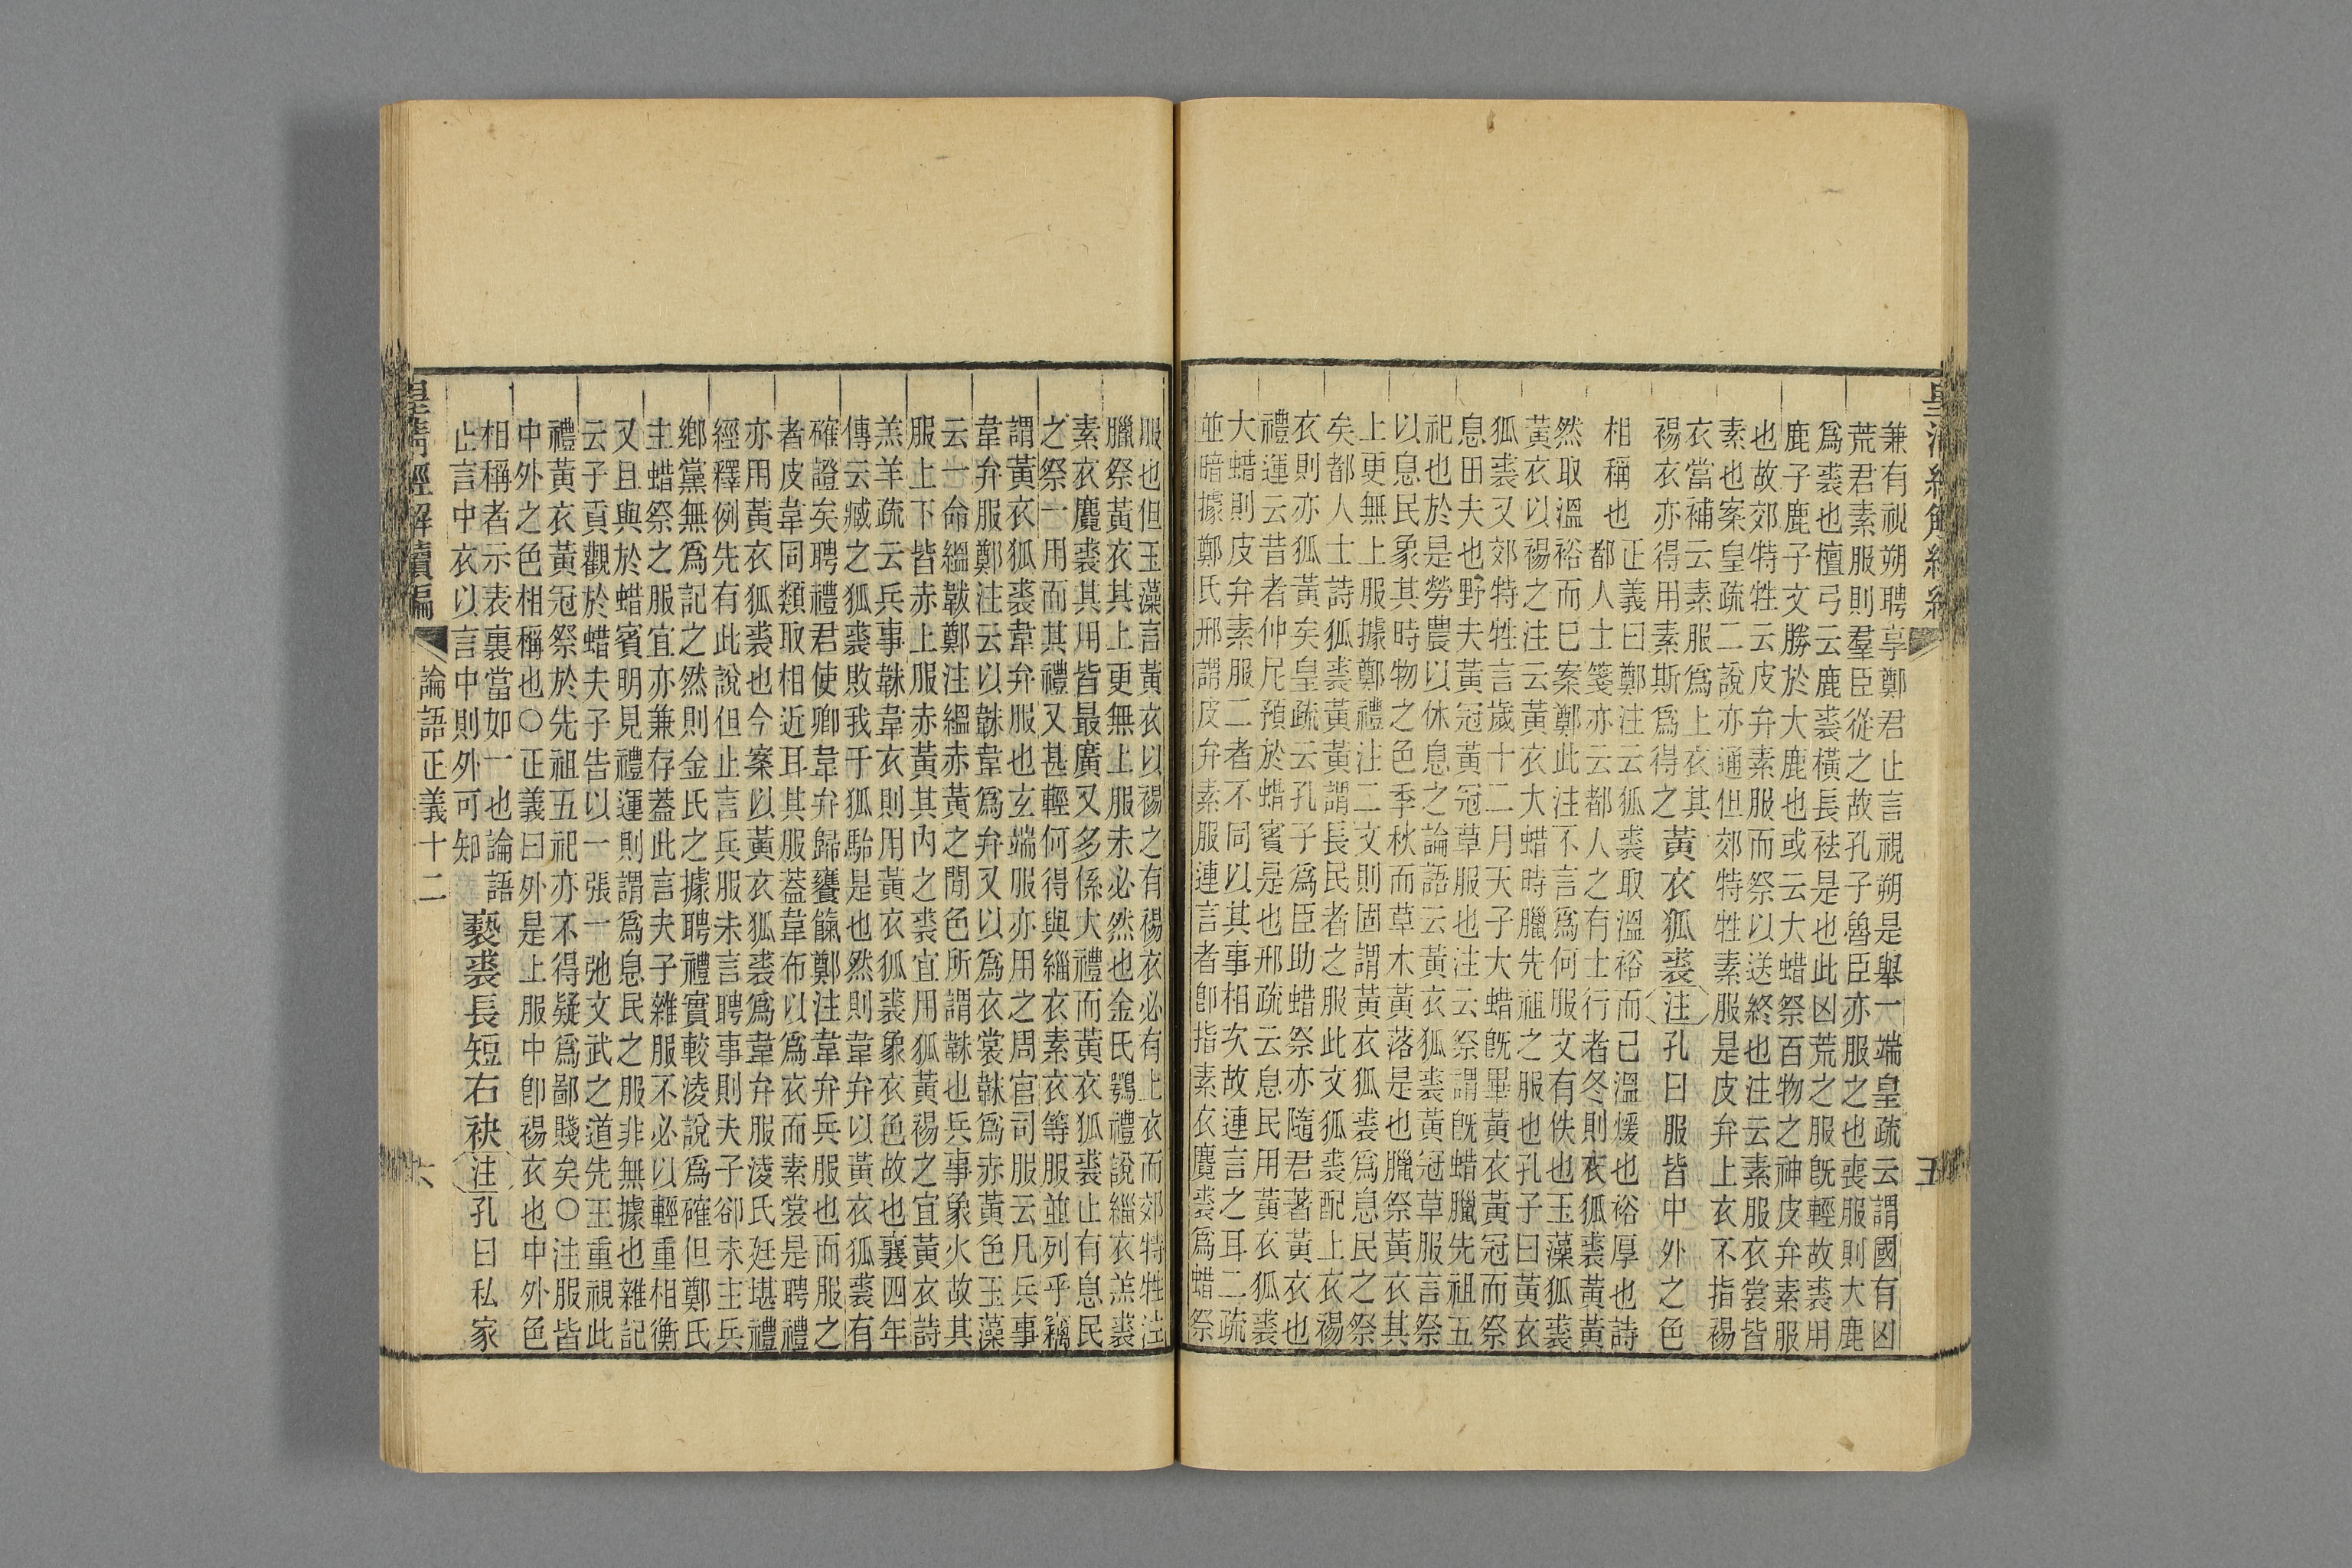 皇清經解續編
五
兼有視朔聘享鄭君止言視朔是舉一端皇疏云謂國有凶
荒君素服則羣臣從之故孔子魯臣亦服之也喪服則大鹿
爲裘也檀弓云鹿裘橫長袪是也此凶荒之服旣輕故裘用
鹿子鹿子文勝於大鹿也或云大蜡祭百物之神皮弁素服
也故郊特牲云皮弁素服而祭以送終也注云素服衣裳皆
素也案皇疏二說亦通但郊特牲素服是皮弁上衣不指裼
衣當補云素服爲上衣其
裼衣亦得用素斯爲得之
黃衣狐裘注孔曰服皆中外之色
相稱也
正義曰鄭注云狐裘取溫裕而已溫煖也裕厚也詩
都人士箋亦云都人之有士行者冬則衣狐裘黃黃
然取溫裕而已案鄭此注不言爲何服文有佚也玉藻狐裘
黃衣以裼之注云黃衣大蜡時臘先祖之服也孔子曰黃衣
狐裘又郊特牲言歲十二月天子大蜡旣畢黃衣黃冠而祭
息田夫也野夫黃冠黃冠草服也注云祭謂旣蜡臘先祖五
祀也於是勞農以休息之論語云黃衣狐裘黃冠草服言祭
以息民象其時物之色季秋而草木黃落是也臘祭黃衣其
上更無上服據鄭禮注二文則固謂黃衣狐裘爲息民之祭
矣都人士詩狐裘黃黃謂長民者之服此文狐裘配上衣裼
衣則亦狐黃矣皇疏云孔子爲臣助蜡祭亦隨君著黃衣也
禮運云昔者仲尼預於蜡賓是也邢疏云息民用黃衣狐裘
大蜡則皮弁素服二者不同以其事相次故連言之耳二疏
並暗據鄭氏邢謂皮弁素服連言者卽指素衣麑裘爲蜡祭
服也但玉藻言黃衣以裼之有裼衣必有上衣而郊特牲注
臘祭黃衣其上更無上服未必然也金氏鶚禮說緇衣羔裘
素衣麑裘其用皆最廣又多係大禮而黃衣狐裘止有息民
之祭一用而其禮又甚輕何得與緇衣素衣等服並列乎竊
謂黃衣狐裘韋弁服也玄端服亦用之周官司服云凡兵事
韋弁服鄭注云以韎韋爲弁又以爲衣裳韎爲赤黃色玉藻
云一命縕韍鄭注縕赤黃之閒色所謂韎也兵事象火故其
服上下皆赤上服赤黃其內之裘宜用狐黃裼之宜黃衣詩
羔羊疏云兵事韎韋衣則用黃衣狐裘象衣色故也襄四年
傳云臧之狐裘敗我于狐駘是也然則韋弁以黃衣狐裘有
確證矣聘禮君使卿韋弁歸饔餼鄭注韋弁兵服也而服之
者皮韋同類取相近耳其服蓋韋布以爲衣而素裳是聘禮
亦用黃衣狐裘也今案以黃衣狐裘爲韋弁服淩氏廷堪禮
經釋例先有此說但止言兵服未言聘事則夫子卻未主兵
鄉黨無爲記之然則金氏之據聘禮實較淩說爲確但鄭氏
主蜡祭之服宜亦兼存蓋此言夫子雜服不必以輕重相衡
又且與於蜡賓明見禮運則謂爲息民之服非無據也雜記
云子貢觀於蜡夫子告以一張一弛文武之道先王重視此
禮黃衣黃冠祭於先祖五祀亦不得疑爲鄙賤矣○注服皆
中外之色相稱也○正義曰外是上服中卽裼衣也中外色
相稱者示表裏當如一也論語
止言中衣以言中則外可知
褻裘長短右袂注孔曰私家
皇清經解續編
論語正義十二
六